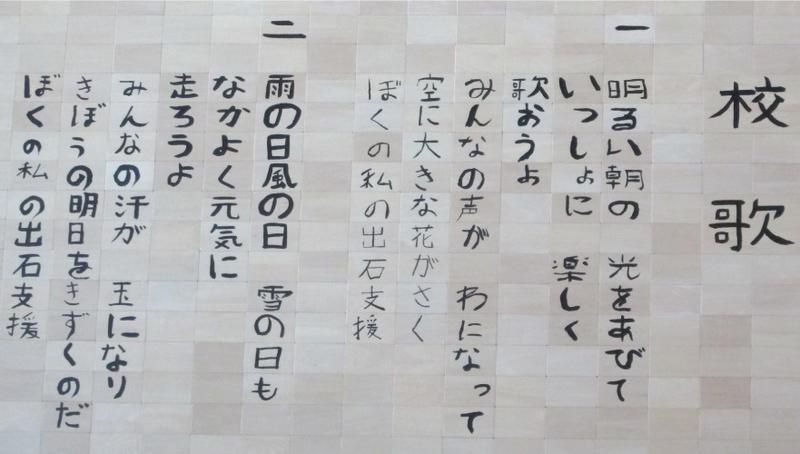 校歌
一
明るい朝の 光をあびて
いっしょに 楽しく
歌おうよ
みんなの声が わになって
空に大きな花がさく
ぼくの私の出石支援
二
雨の日風の日 雪の日も
なかよく元気に
走ろうよ
みんなの汗が 玉になり
きぼうの明日をきずくのだ
ぼくの私の出石支援